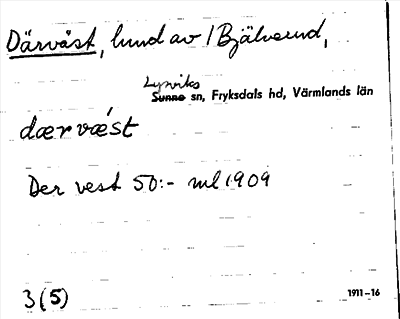 Därväst, lund av 1 Bjälverud,
Lysviks
Sunne sn, Fryksdals hd, Värmlands län
dærvǽst
Der vest 50:- ml 1909
3(5) 1911-16